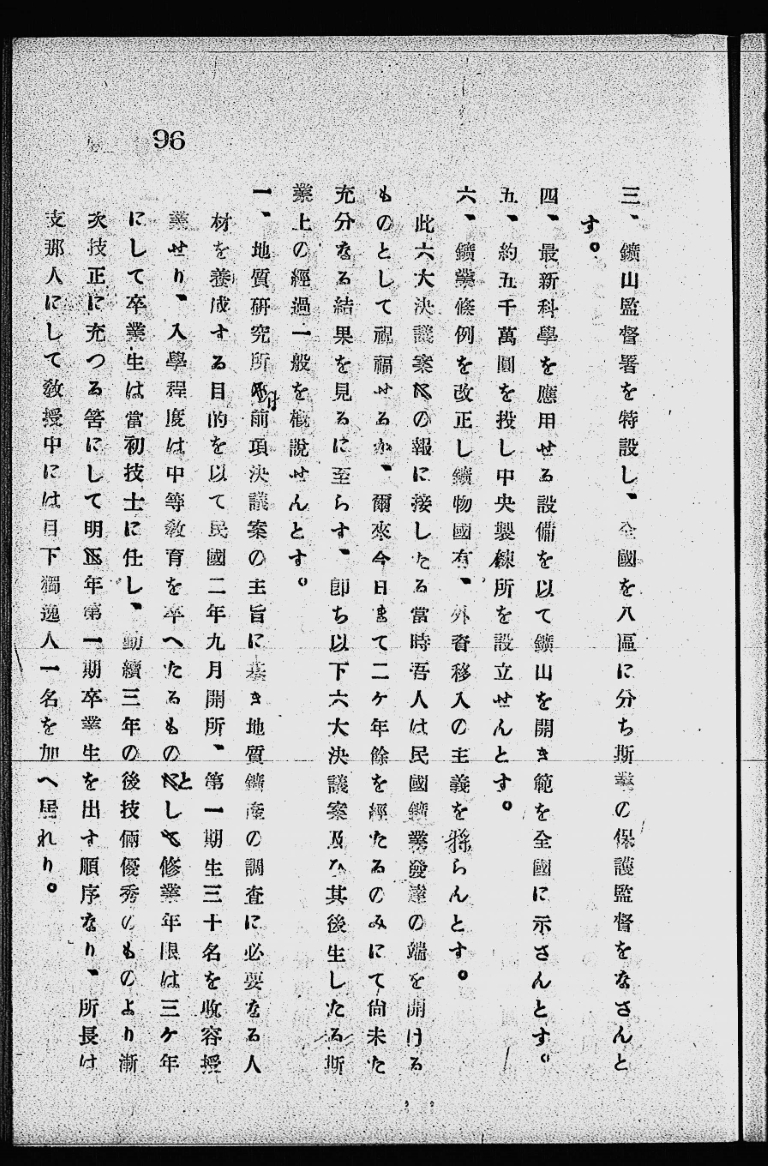 96
三、鑛山監督署を特設し、全國を八區に分ち斯業の保護監督をなさんと
す。
四、最新科學を應用せる設備を以て鑛山を開き範を全國に示さんとす。
五、約五千萬圓を投し中央製煉所を設立せんとす。
六、鑛業條例を改正し鑛物國有、外資移入の主義を採らんとす。
此六大決議案の報に接したる當時吾人は民國鑛業發達の端を開ける
ものとして祝福せるか、爾來今日まて二ケ年餘を經たるのみにて尙未た
充分なる結果を見るに至らす、卽ち以下六大決議案及ひ其後生したる斯
業上の經過一般を槪說せんとす。
一、地質硏究所 前項決議案の主旨に基き地質鑛產の調査に必要なる人
材を養成する目的を以て民國二年九月開所、第一期生三十名を收容授
業せり、入學程度は中等敎育を卒へたるものとし修業年限は三ケ年
にして卒業生は當初技士に任し、勤續三年の後技倆優秀のものより漸
次技正に充つる筈にして明年第一期卒業生を出す順序なり、所長は
支那人にして敎授中には目下獨逸人一名を加へ居れり。